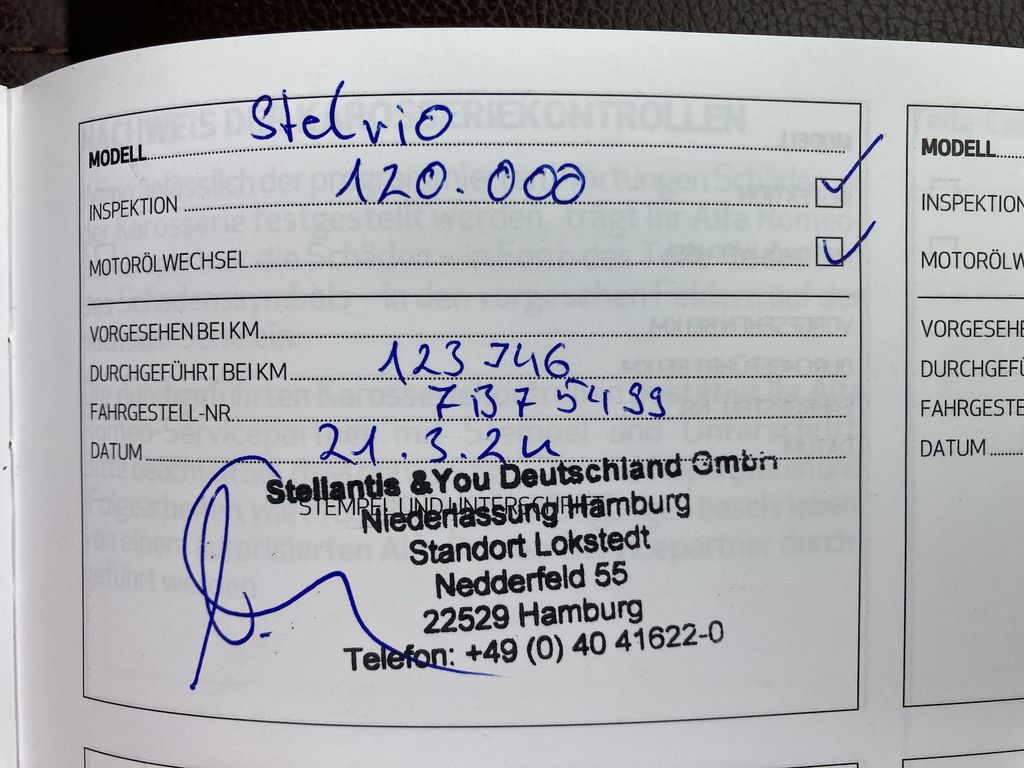 MODELL Stelvio
INSPEKTION 120.000
MOTORÖLWECHSEL
VORGESEHEN BEI KM
DURCHGEFÜHRT BEI KM 123 746
FAHRGESTELL-NR. 7B7 5499
DATUM 21.3.24
STEMPEL UND UNTERSCHRIFT
Stellantis &You Deutschland GmbH
Niederlassung Hamburg
Standort Lokstedt
Nedderfeld 55
22529 Hamburg
Telefon: +49 (0) 40 41622-0
MODELL
INSPEKTION
MOTORÖLW
VORGESEHE
DURCHGEFÜ
FAHRGESTE
DATUM